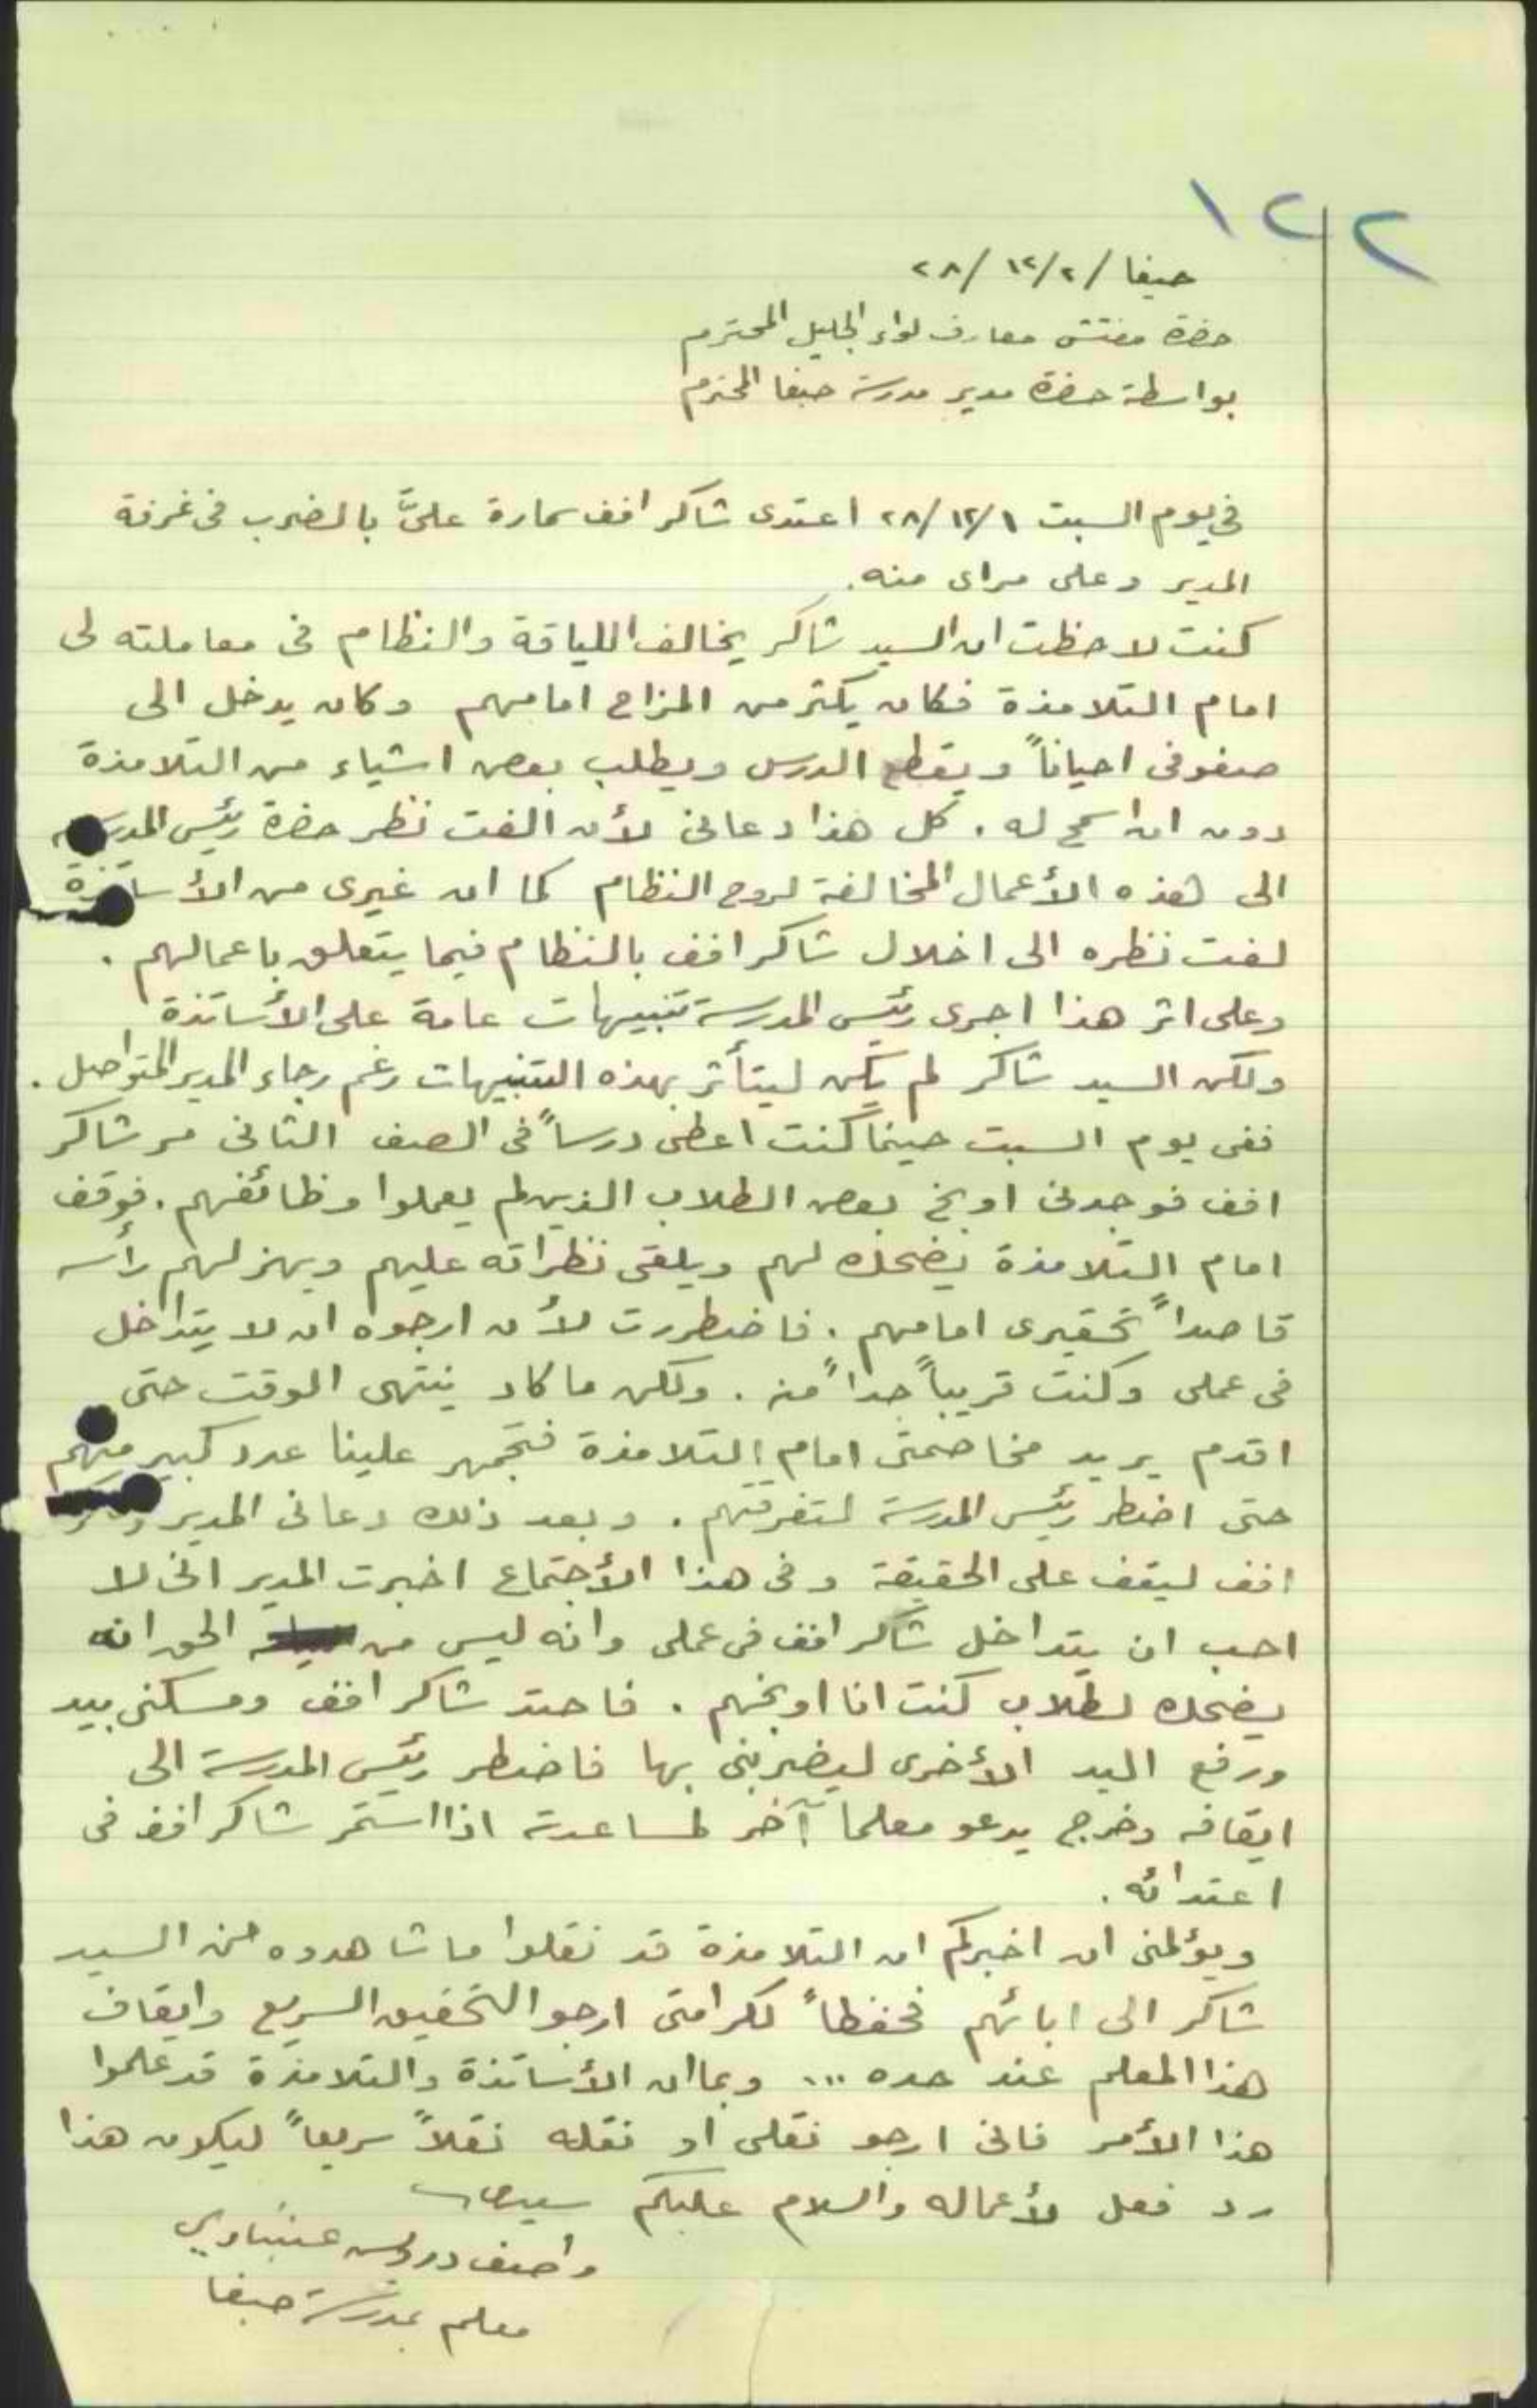 ١٢٢
حيفا / ٢/١٢/ ٢٨
حضرة مفتش معارف لواء الجليل المحترم
بواسطة حضرة مدير مدرسة حيفا المحترم
في يوم السبت ١/١٢/ ٢٨ اعتدى شاكر افف سمارة عليَّ بالضرب في غرفة
المدير وعلى مراى منه.
كنت لاحظت ان السيد شاكر يخالف اللياقة والنظام في معاملته لى
امام التلامذة فكان يكثر من المزاح امامهم وكان يدخل الى
صفوفى احياناً ويقطع الدرس ويطلب بعض اشياء من التلامذة
دون ان اسمح له . كل هذا دعانى لأن الفت نظر حضرة رئيس المدرسة
الى هذه الأعمال المخالفة لروح النظام كما ان غيرى من الأساتذة
لفت نظره الى اخلال شاكر افف بالنظام فيما يتعلق باعمالهم .
وعلى اثر هذا اجرى رئيس المدرسة تنبيهات عامة على الأساتذة
ولكن السيد شاكر لم يكن ليتأثر بهذه التنبيهات رغم رجاء المدير المتواصل .
ففى يوم السبت حينما كنت اعطى درساً فى الصف الثانى مر شاكر
افف فوجدنى اوبخ بعض الطلاب الذين لم يعملوا وظائفهم . فوقف
امام التلامذة يضحك لهم ويلقى نظراته عليهم ويهز لهم رأسه
قاصداً تحقيرى امامهم . فاضطررت لأن ارجوه ان لا يتداخل
فى عملى وكنت قريباً جداً منه . ولكن ما كاد ينتهى الوقت حتى
اقدم يريد مخاصمتى امام التلامذة فتجمهر علينا عدد كبير منهم
حتى اضطر رئيس المدرسة لتفرقتهم . وبعد ذلك دعانى المدير
افف ليقف على الحقيقة وفى هذا الأجتماع اخبرت المدير انى لا
احب ان يتداخل شاكر افف فى عملى وانه ليس من الحق انه
يضحك لطلاب كنت انا اوبخهم . فاحتد شاكر افف ومسكنى بيد
ورفع اليد الأخرى ليضربنى بها فاضطر رئيس المدرسة الى
ايقافه وخرج يدعو معلما آخر لمساعدته اذا استمر شاكر افف فى
اعتدائه .
ويؤلمنى ان اخبركم ان التلامذة قد نقلوا ما شاهدوه من السيد
شاكر الى ابائهم فحفظاً لكرامتى ارجو التحقيق السريع وايقاف
هذا المعلم عند حده ... وبما ان الأساتذة والتلامذة قد علموا
هذا الأمر فانى ارجو نقلى او نقله نقلاً سريعاً ليكون هذا
رد فعل لأعماله والسلام عليكم سيدى
واصف درويش عنبتاوي
معلم بمدرسة حيفا